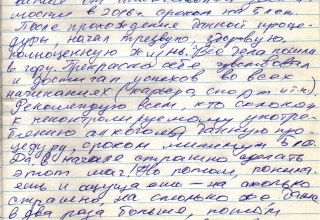 мости в 2016г, сроком на 5 лет.
После прохождения данной проце-
дуры, начал трезвую, здоровую,
полноценную жизнь. Все дела пошли
в гору. Прекрасно себя чувствовал
и достигал успехов во всех
начинаниях (карьера, спорт и т.п.)
Рекомендую всем, кто склонен
к неконтролируемому употре-
блению алкоголя данную про-
цедуру, сроком минимум 5 лет
Да в начале страшно сделать
этот шаг! Но потом, понима-
ешь и ощущаешь – на сколько
страшно, на столько же
в два раза больше, потом